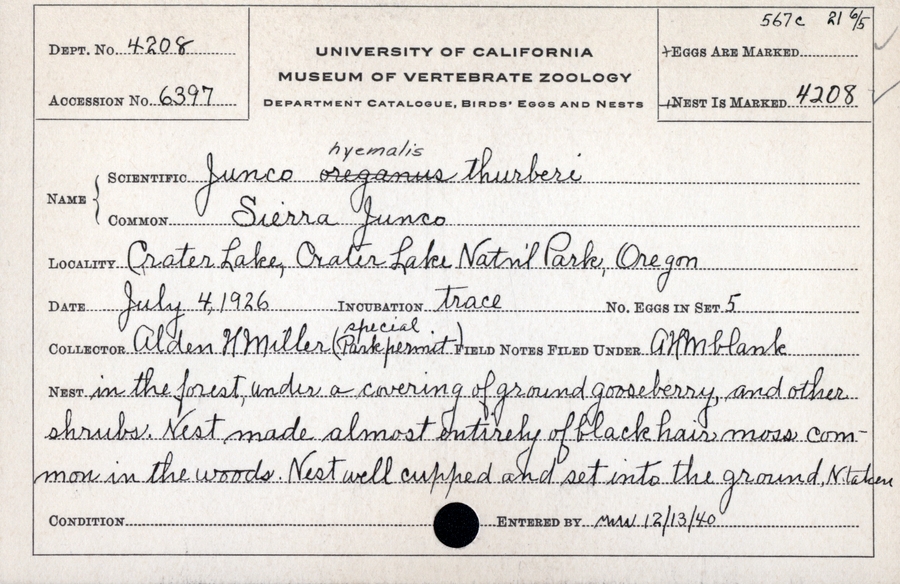 567c 21 6/5
Dept. No. 4208
UNIVERSITY OF CALIFORNIA
MUSEUM OF VERTEBRATE ZOOLOGY
Department Catalogue, Birds' Eggs and Nests
Eggs Are Marked
Accession No. 6397
Nest Is Marked 4208
hyemalis
Name Scientific Junco oreganus thurberi
Common Sierra Junco
Locality Crater Lake, Crater Lake Nat'n'l Park, Oregon
Date July 4, 1926 Incubation trace No. Eggs in Set 5
special
Collector Alden H Miller (Park permit) Field Notes Filed Under AHM blank
Nest in the forest, under a covering of ground gooseberry, and other
shrubs. Nest made almost entirely of black hair moss com-
mon in the woods. Nest well cupped and set into the ground. N. taken
Condition Entered by 12/13/40